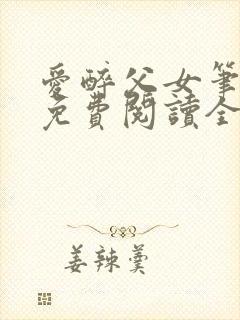 愛醉父女筆
免費閱讀全
姜辣羹